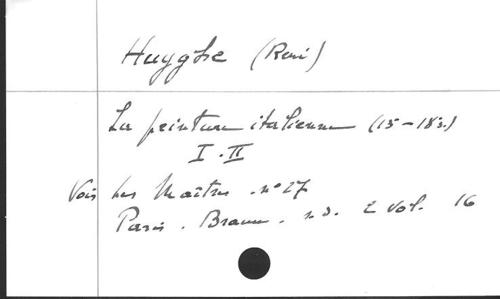 Huyghe (René)
La peinture italienne (15-18s.)
I. II
Voir Les Maîtres. n° 27
Paris. Braun. s.d. 2 vol. 16